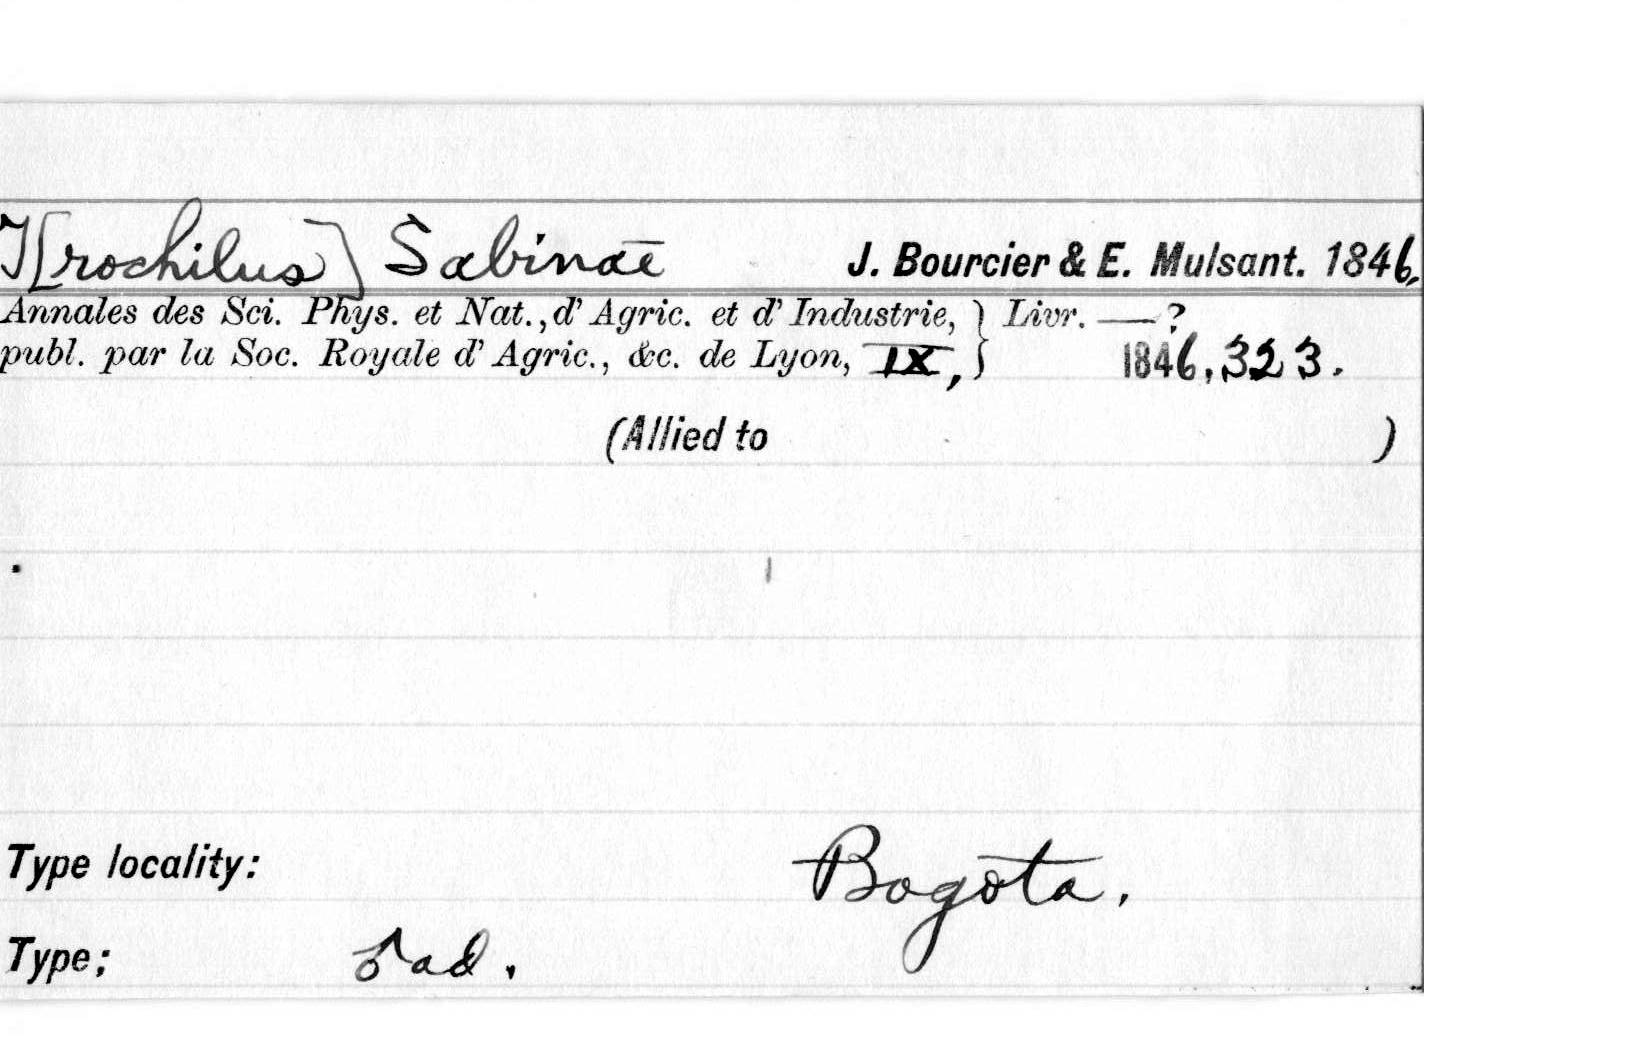 T[rochilus] Sabinae J. Bourcier & E. Mulsant. 1846.
Annales des Sci. Phys. et Nat., d' Agric. et d' Industrie, } Livr. —?
publ. par la Soc. Royale d' Agric., &c. de Lyon, IX, } 1846, 323.
(Allied to )
Type locality: Bogota.
Type; ♂ ad.